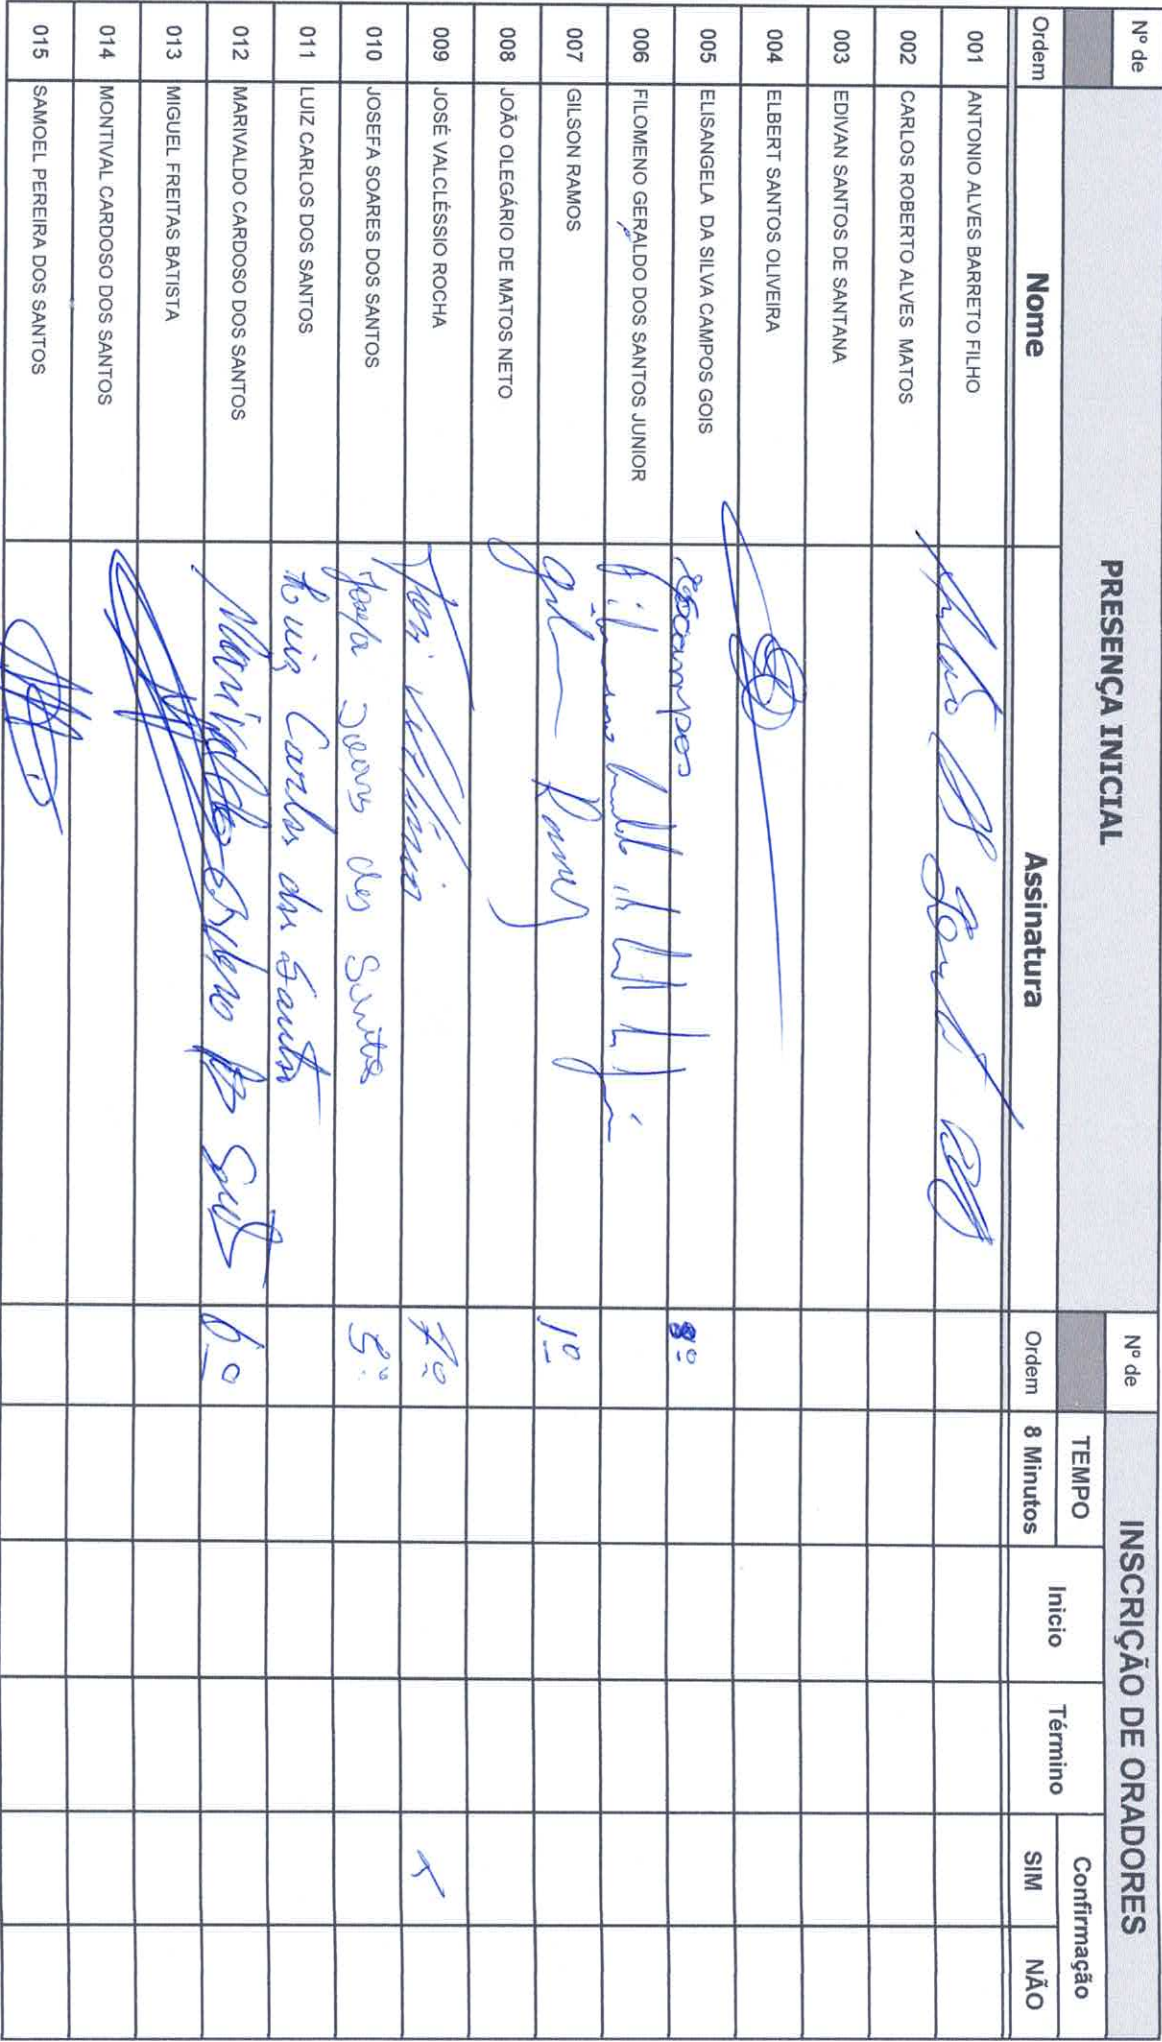 Nº de PRESENÇA INICIAL Nº de INSCRIÇÃO DE ORADORES
TEMPO Confirmação
Ordem Nome Assinatura Ordem 8 Minutos Inicio Término SIM NÃO
001 ANTONIO ALVES BARRETO FILHO
002 CARLOS ROBERTO ALVES MATOS
003 EDIVAN SANTOS DE SANTANA
004 ELBERT SANTOS OLIVEIRA
005 ELISANGELA DA SILVA CAMPOS GOIS 8º
006 FILOMENO GERALDO DOS SANTOS JUNIOR
007 GILSON RAMOS Gilson Ramos 1º
008 JOÃO OLEGÁRIO DE MATOS NETO
009 JOSÉ VALCLÉSSIO ROCHA José 7º
010 JOSEFA SOARES DOS SANTOS Josefa Soares dos Santos 5º
011 LUIZ CARLOS DOS SANTOS Luiz Carlos dos Santos
012 MARIVALDO CARDOSO DOS SANTOS Marivaldo 6º
013 MIGUEL FREITAS BATISTA
014 MONTIVAL CARDOSO DOS SANTOS
015 SAMOEL PEREIRA DOS SANTOS